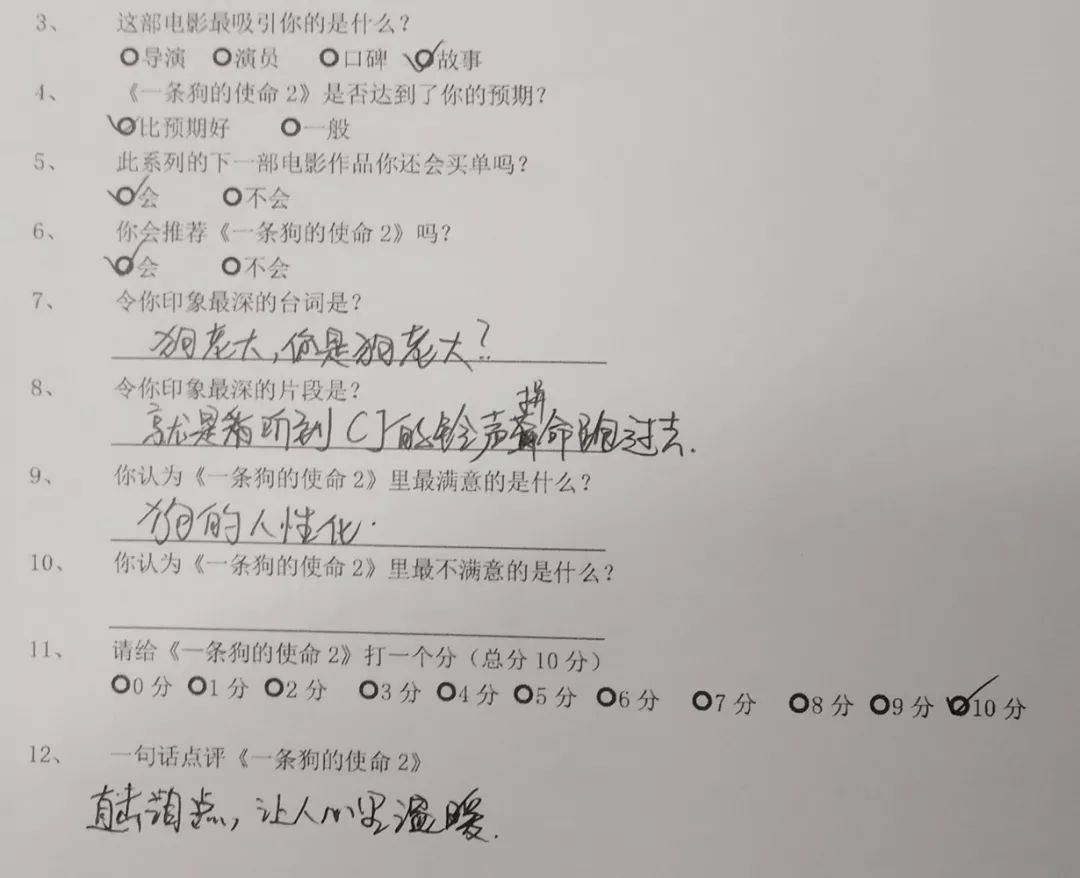 3、 这部电影最吸引你的是什么？
导演 演员 口碑 故事
4、 《一条狗的使命2》是否达到了你的预期？
比预期好 一般
5、 此系列的下一部电影作品你还会买单吗？
会 不会
6、 你会推荐《一条狗的使命2》吗？
会 不会
7、 令你印象最深的台词是？
狗老大，你是狗老大？
8、 令你印象最深的片段是？
就是 听到CJ的铃声拼命跑过去.
9、 你认为《一条狗的使命2》里最满意的是什么？
狗的人性化.
10、 你认为《一条狗的使命2》里最不满意的是什么？
11、 请给《一条狗的使命2》打一个分（总分10分）
0分 1分 2分 3分 4分 5分 6分 7分 8分 9分 10分
12、 一句话点评《一条狗的使命2》
直击泪点，让人心里温暖.